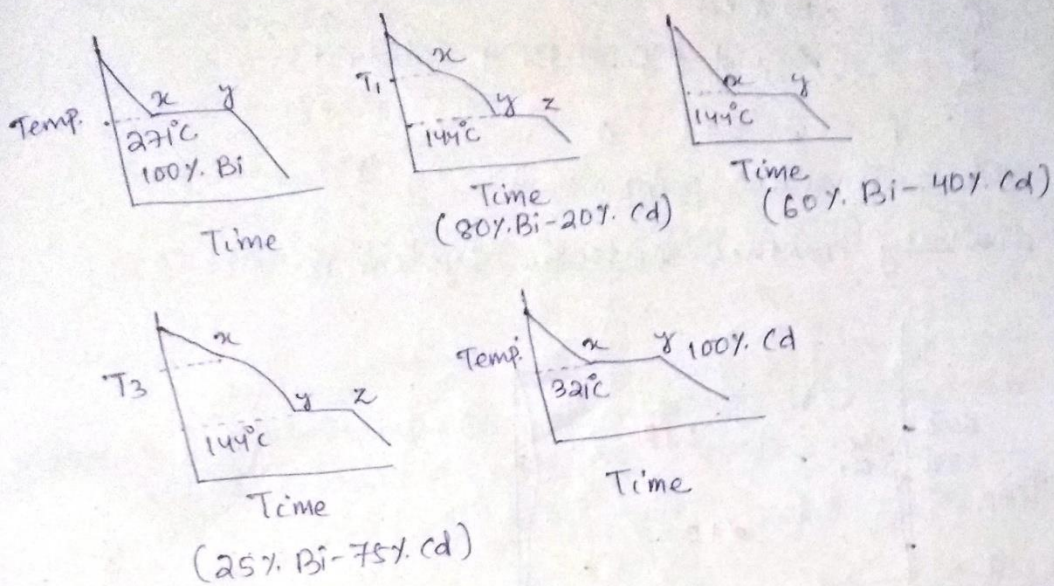 Temp.
x y
271°C
100%. Bi
Time
T1
x
y z
144°C
Time
(80%.Bi-20%. Cd)
x y
144°C
Time
(60%. Bi- 40%. Cd)
T3
x
y z
144°C
Time
(25%. Bi-75%. Cd)
Temp.
x y 100%. Cd
321°C
Time